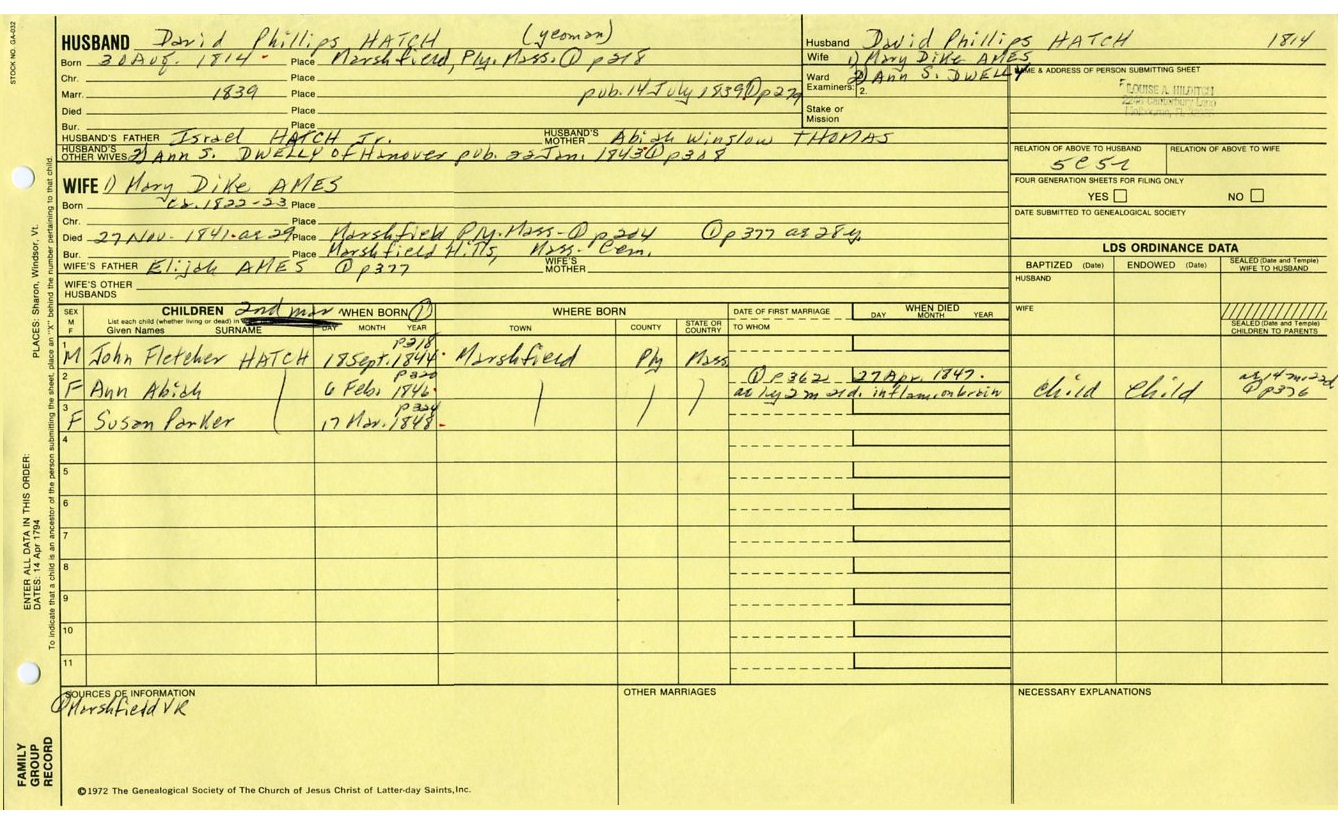 STOCK NO. GA-032
HUSBAND David Phillips HATCH (yeoman)
Born 30 Aug. 1814 Place Marshfield, Ply. Mass. ① p218
Chr. Place
Marr. 1839 Place pub. 14 July 1839 ① p279
Died Place
Bur. Place
HUSBAND'S FATHER Israel HATCH Jr. HUSBAND'S MOTHER Abiah Winslow THOMAS
HUSBAND'S OTHER WIVES 2) Ann S. DWELLY of Hanover pub. 22 Jan. 1843 ① p308
Husband David Phillips HATCH 1814
Wife 1) Mary Dike AMES
2) Ann S. DWELLY
Ward Examiners: 2.
Stake or Mission
NAME & ADDRESS OF PERSON SUBMITTING SHEET
LOUISE A. HILDITCH
Canterbury Lane
RELATION OF ABOVE TO HUSBAND RELATION OF ABOVE TO WIFE
5C5R
FOUR GENERATION SHEETS FOR FILING ONLY
YES NO
DATE SUBMITTED TO GENEALOGICAL SOCIETY
WIFE 1) Mary Dike AMES
Born ca. 1822-23 Place
Chr. Place
Died 27 Nov. 1841. ae 29 Place Marshfield Ply. Mass. ① p204 ① p377 ae 28y.
Bur. Place Marshfield Hills, Mass. Cem.
WIFE'S FATHER Elijah AMES ① p377 WIFE'S MOTHER
WIFE'S OTHER HUSBANDS
LDS ORDINANCE DATA
BAPTIZED (Date) ENDOWED (Date) SEALED (Date and Temple) WIFE TO HUSBAND
HUSBAND
WIFE
SEALED (Date and Temple) CHILDREN TO PARENTS
SEX M F CHILDREN 2nd mar WHEN BORN ① WHERE BORN DATE OF FIRST MARRIAGE WHEN DIED
List each child (whether living or dead) in
Given Names SURNAME DAY MONTH YEAR TOWN COUNTY STATE OR COUNTRY TO WHOM DAY MONTH YEAR
1 M John Fletcher HATCH 18 Sept. 1844 p218 Marshfield Ply Mass
2 F Ann Abiah 6 Feb. 1846 p220 ① p362 27 Apr. 1847. ae 1y 2m 21d. inflam. on brain child child ae 14m 22d ① p376
3 F Susan Parker 17 Mar. 1848 p224
4
5
6
7
8
9
10
11
SOURCES OF INFORMATION
① Marshfield VR
OTHER MARRIAGES
NECESSARY EXPLANATIONS
©1972 The Genealogical Society of The Church of Jesus Christ of Latter-day Saints, Inc.
FAMILY GROUP RECORD
ENTER ALL DATA IN THIS ORDER:
DATES: 14 Apr 1794
PLACES: Sharon, Windsor, Vt.
To indicate that a child is an ancestor of the person submitting the sheet, place an "X" behind the number pertaining to that child.